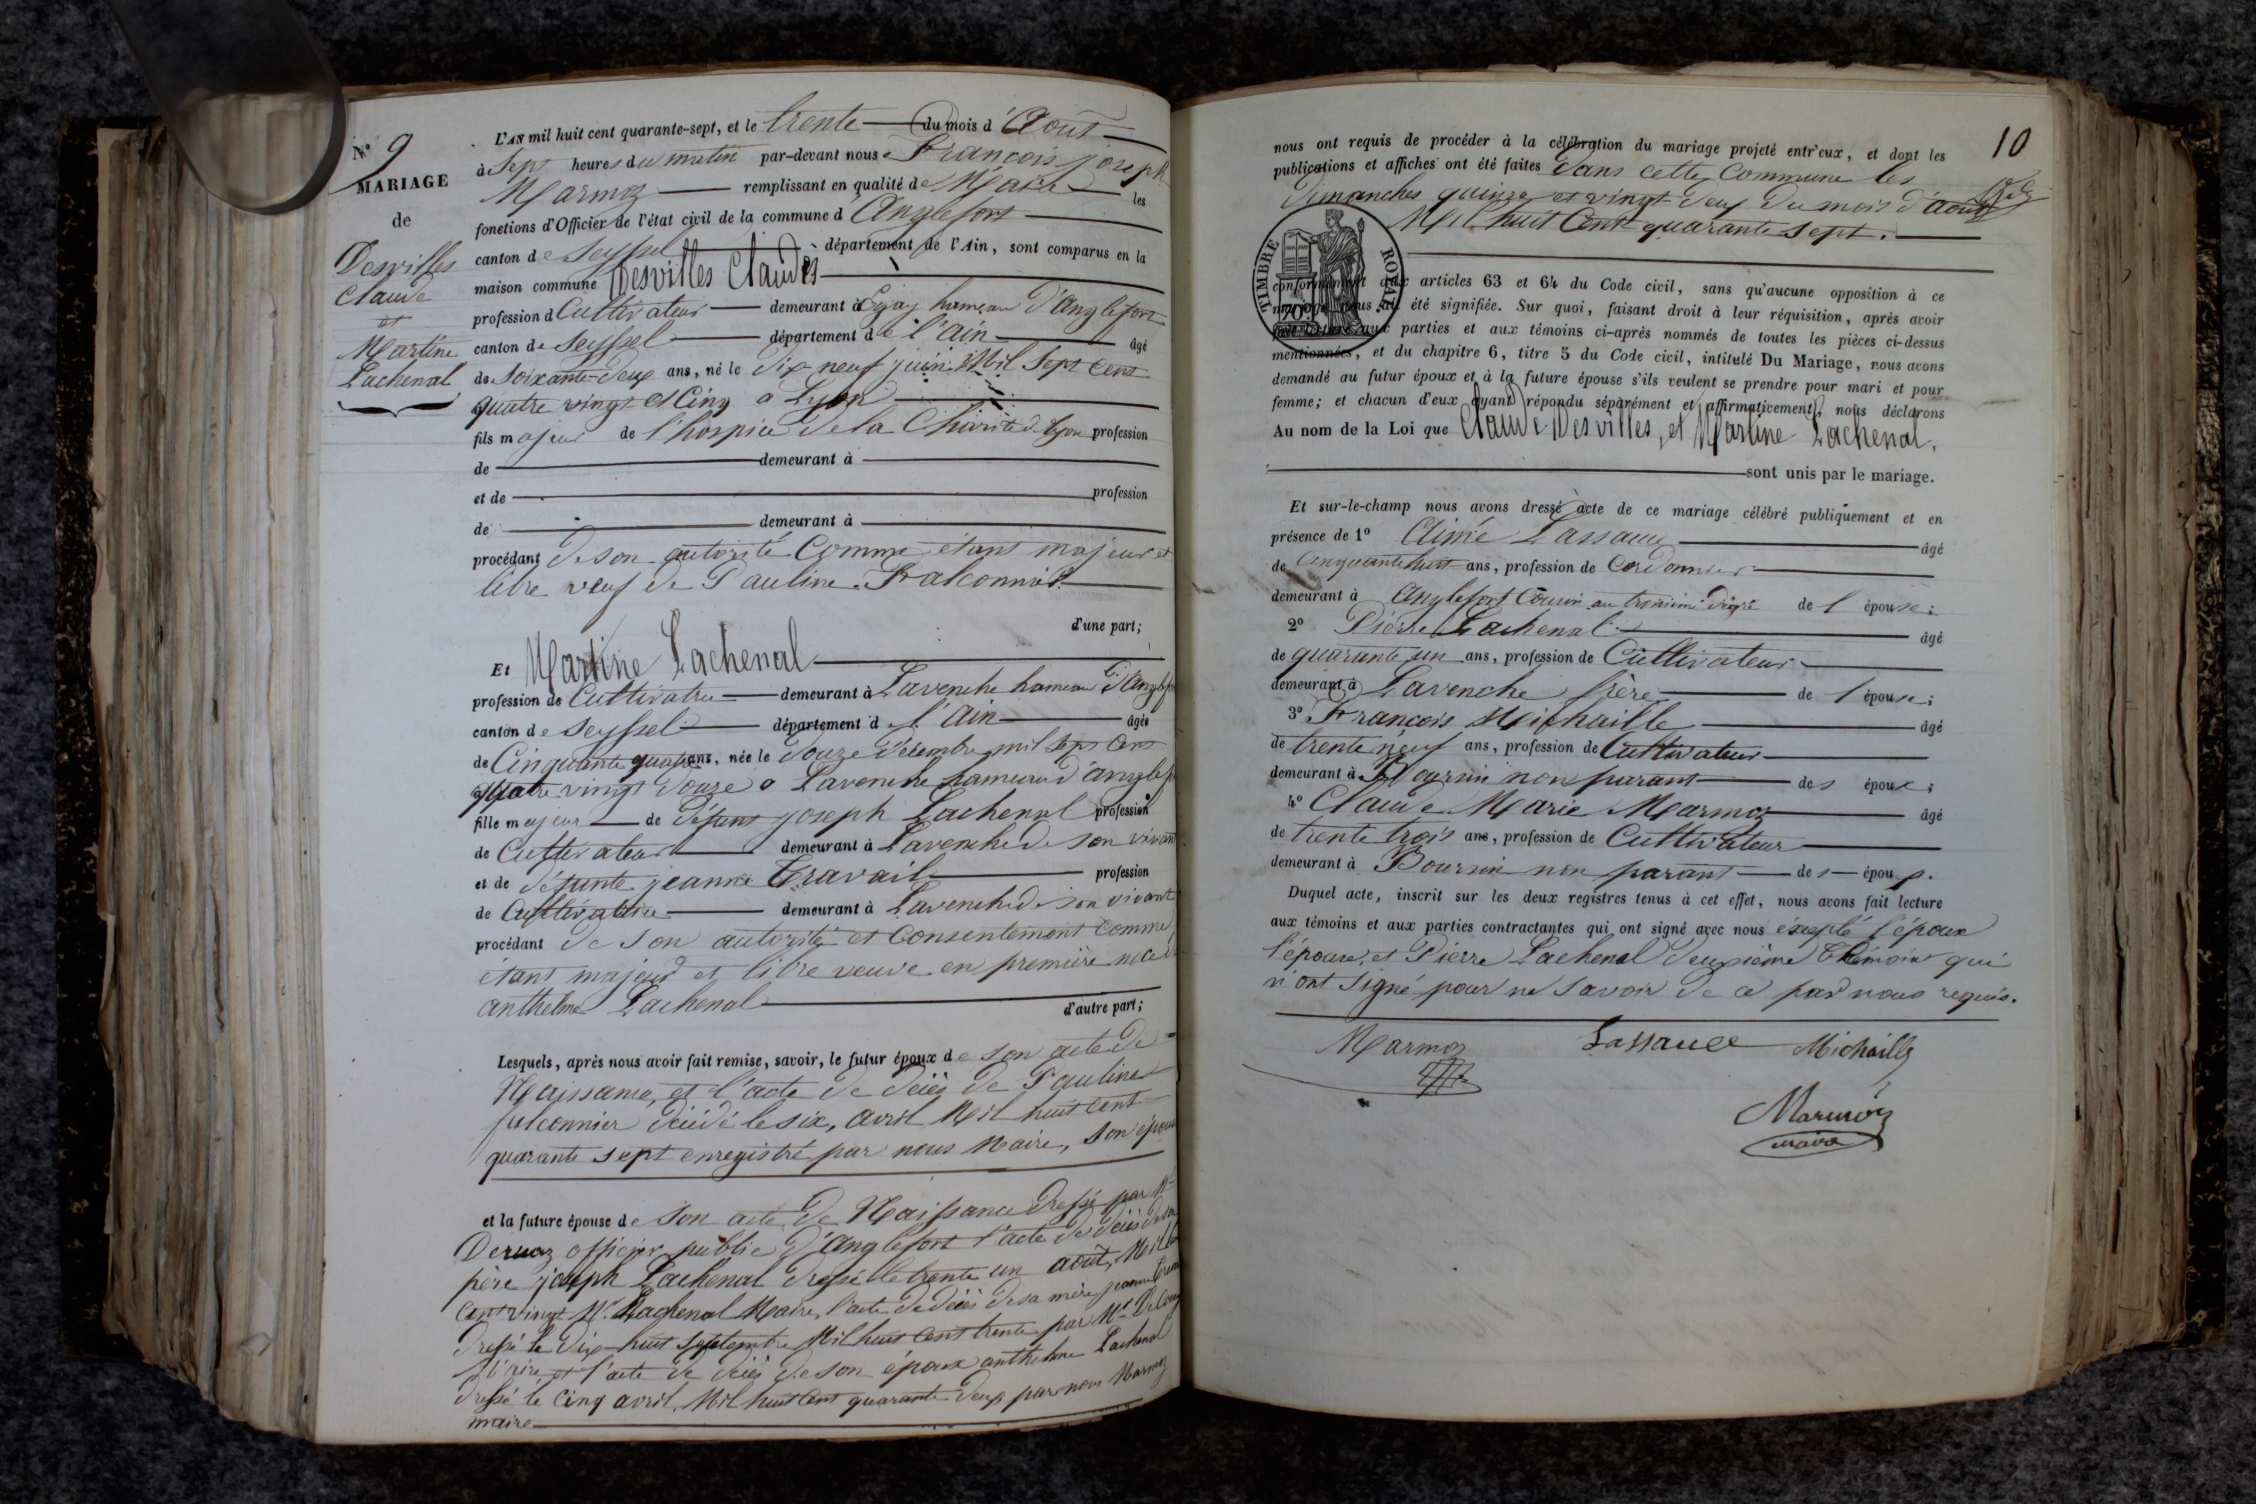 N° 9
MARIAGE
de
Desvilles
Claude
et
Martine
Lachenal
L'AN mil huit cent quarante-sept, et le trente du mois d'Août
à Sept heures du matin par-devant nous François joseph
Marmoz remplissant en qualité de Maire les
fonctions d'Officier de l'état civil de la commune d'Anglefort
canton de Seyssel département de l'Ain, sont comparus en la
maison commune Desvilles Claude
profession de Cultivateur demeurant à hameau d'Anglefort
canton de Seyssel département de l'Ain âgé
de Soixante-deux ans, né le dix-neuf juin Mil Sept Cent
quatre vingt et Cinq à Lyon
fils majeur de l'hospice de la Charité de Lyon profession
de demeurant à
et de profession
de demeurant à
procédant de son autorité Comme étant majeur et
libre veuf de Pauline Falconnier
d'une part;
Et Martine Lachenal
profession de Cultivatrice demeurant à Lavenche hameau d'Anglefort
canton de Seyssel département de l'Ain âgée
de Cinquante quatre ans, née le douze décembre mil Sept Cent
quatre vingt douze à Lavenche hameau d'anglefort
fille majeur de défunt joseph Lachenal profession
de Cultivateur demeurant à Lavenche de son vivant
et de défunte jeanne Travail profession
de Cultivatrice demeurant à Lavenche de son vivant
procédant de son autorité et Consentement Comme
étant majeur et libre veuve en première noce d
anthelme Lachenal
d'autre part;
Lesquels, après nous avoir fait remise, savoir, le futur époux de son acte de
Naissance, et l'acte de décès de Pauline
falconnier décédé le six, avril Mil huit cent
quarante sept enregistré par nous Maire, Son épouse
et la future épouse de son acte de Naissance Dressé par Mr
Deruaz officier public d'Anglefort l'acte de décès de son
père joseph Lachenal dressé le trente un août, Mil huit
Cent vingt Mr. Lachenal Maire, l'acte de décès de sa mère jeanne
dressé le dix-huit Septembre Mil huit Cent trente par Mr
Maire, et l'acte de décès de son époux anthelme Lachenal
dressé le cinq avril, Mil huit Cent quarante deux par nous Marmoz
maire
10
nous ont requis de procéder à la célébration du mariage projeté entr'eux, et dont les
publications et affiches ont été faites Dans cette Commune les
dimanches quinze et vingt deux du mois d'août
Mil huit Cent quarante sept.
TIMBRE ROYAL
conformément aux articles 63 et 64 du Code civil, sans qu'aucune opposition à ce
mariage nous ait été signifiée. Sur quoi, faisant droit à leur réquisition, après avoir
fait lecture aux parties et aux témoins ci-après nommés de toutes les pièces ci-dessus
mentionnées, et du chapitre 6, titre 5 du Code civil, intitulé Du Mariage, nous avons
demandé au futur époux et à la future épouse s'ils veulent se prendre pour mari et pour
femme; et chacun d'eux ayant répondu séparément et affirmativement, nous déclarons
Au nom de la Loi que Claude Desvilles, et Martine Lachenal,
sont unis par le mariage.
Et sur-le-champ nous avons dressé acte de ce mariage célébré publiquement et en
présence de 1° Aimé Lassauce âgé
de Cinquante huit ans, profession de Cordonnier
demeurant à Anglefort Cousin au troisième dégré de l'épouse;
2° Pierre Lachenal âgé
de quarante un ans, profession de Cultivateur
demeurant à Lavenche frère de l'épouse;
3° François Michaille âgé
de trente neuf ans, profession de Cultivateur
demeurant à non parant des époux;
4° Claude Marie Marmoz âgé
de trente trois ans, profession de Cultivateur
demeurant à Boursin non parant des époux.
Duquel acte, inscrit sur les deux registres tenus à cet effet, nous avons fait lecture
aux témoins et aux parties contractantes qui ont signé avec nous éxepté l'époux
l'épouse, et Pierre Lachenal deuxième thémoin qui
n'ont signé pour ne savoir de ce par nous requis.
Marmoz Lassauce Michaille
Marmoz
maire